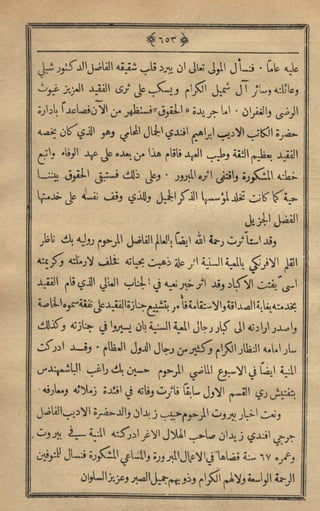 ﴿ ٦٥٣ ﴾
عليه عاماً . فنسأل المولى تعالى ان يبرد قلب شقيقه الفاضل الدكتور شبلي
وعائلته وسائر آل شميل الكرام ويسكب على ثرى الفقيد العزيز غيوث
الرضى والغفران . اما جريدة «الحقوق» فستظهر من الآن فصاعداً بادارة
حضرة الكاتب الاديب ابراهيم افندي الجمال المحامي وهو الذي كان يخصه
الفقيد بعظيم الثقة وطيب العهد فاقام هذا من بعده على عهد الوفاء واتبع
خطته المشكورة واقتفى اثره المبرور . وعلى ذلك فستبقى الحقوق بيننا
حية كما كانت تخلد لمؤسسها الذكر الجميل وللذي وقف نفسه على خدمتها
الفضل الجزيل
وقد استأثرت رحمة الله ايضاً بالعالم الفاضل المرحوم روليه بك ناظر
القلم الافرنكي بالمعية السنية اثر علة ذهبت بحياته فخلف لارملته وكريمته
اسى يفتت الاكباد وقد اثر خبر نعيه في الجناب العالي الذي قام الفقيد
بخدمته بغاية الصداقة والاستقامة فأمر بتشييع جنازة الفقيد على نفقة سموه الخاصة
واصدر ارادته الى كبار رجال المعية السنية بان يسيروا في جنازته وكذلك
سار امامه النظار الكرام وكثير من رجال الدول العظام . وقد ادركت
المنية ايضاً في الاسبوع الماضي المرحوم حسين بك راغب الباشمهندس
بتفتيش ري القسم الاول سابقاً فاثرت وفاته في افئدة زملائه ومعارفه .
ونعت اخبار بيروت المرحوم حبيب زيدان والد حضرة الاديب الفاضل
جرجي افندي زيدان صاحب الهلال الاغر ادركته المنية في بيروت
وعمره ٦٧ سنة قضاها في الاعمال المبرورة والمساعي المشكورة فنسأل للمتوفين
الرحمة الواسعة ولآلهم الكرام وذويهم جميل الصبر وعزيز السلوان